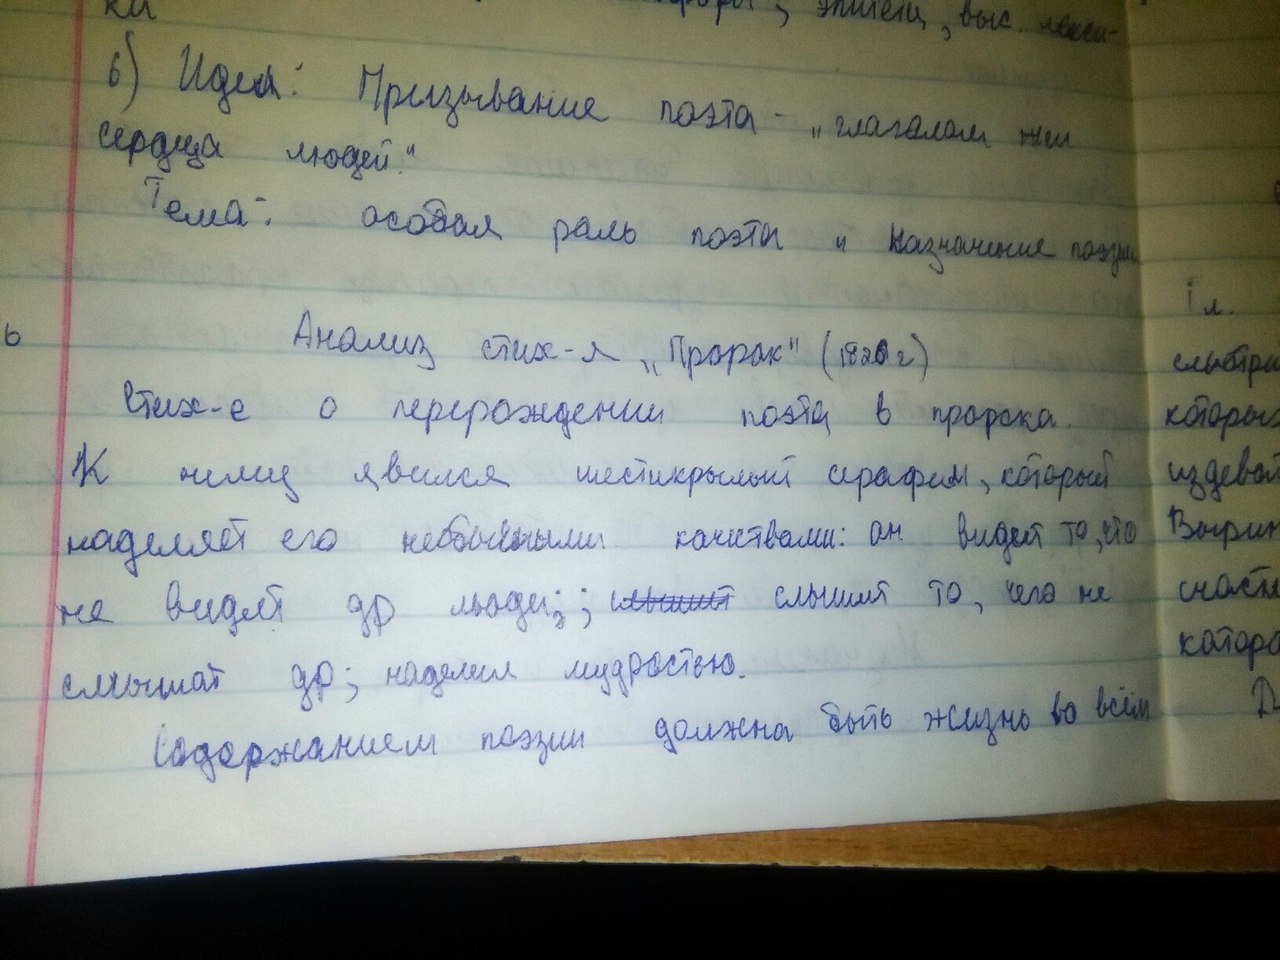 ки эпитеты, выс. лекси-
6) Идея: Призывание поэта - „глаголом жги
сердца людей."
Тема: особая роль поэта и назначение поэзии
Анализ стих-я „Пророк" (1826 г)
Стих-е о перерождении поэта в пророка.
К нему явился шестикрылый серафим, который
наделяет его необычными качествами: он видет то, что
не видят др люди; ; слышит то, чего не
слышат др; наделил мудростью.
Содержанием поэзии должна быть жизнь во всём
ь
1 л.
которых
Д